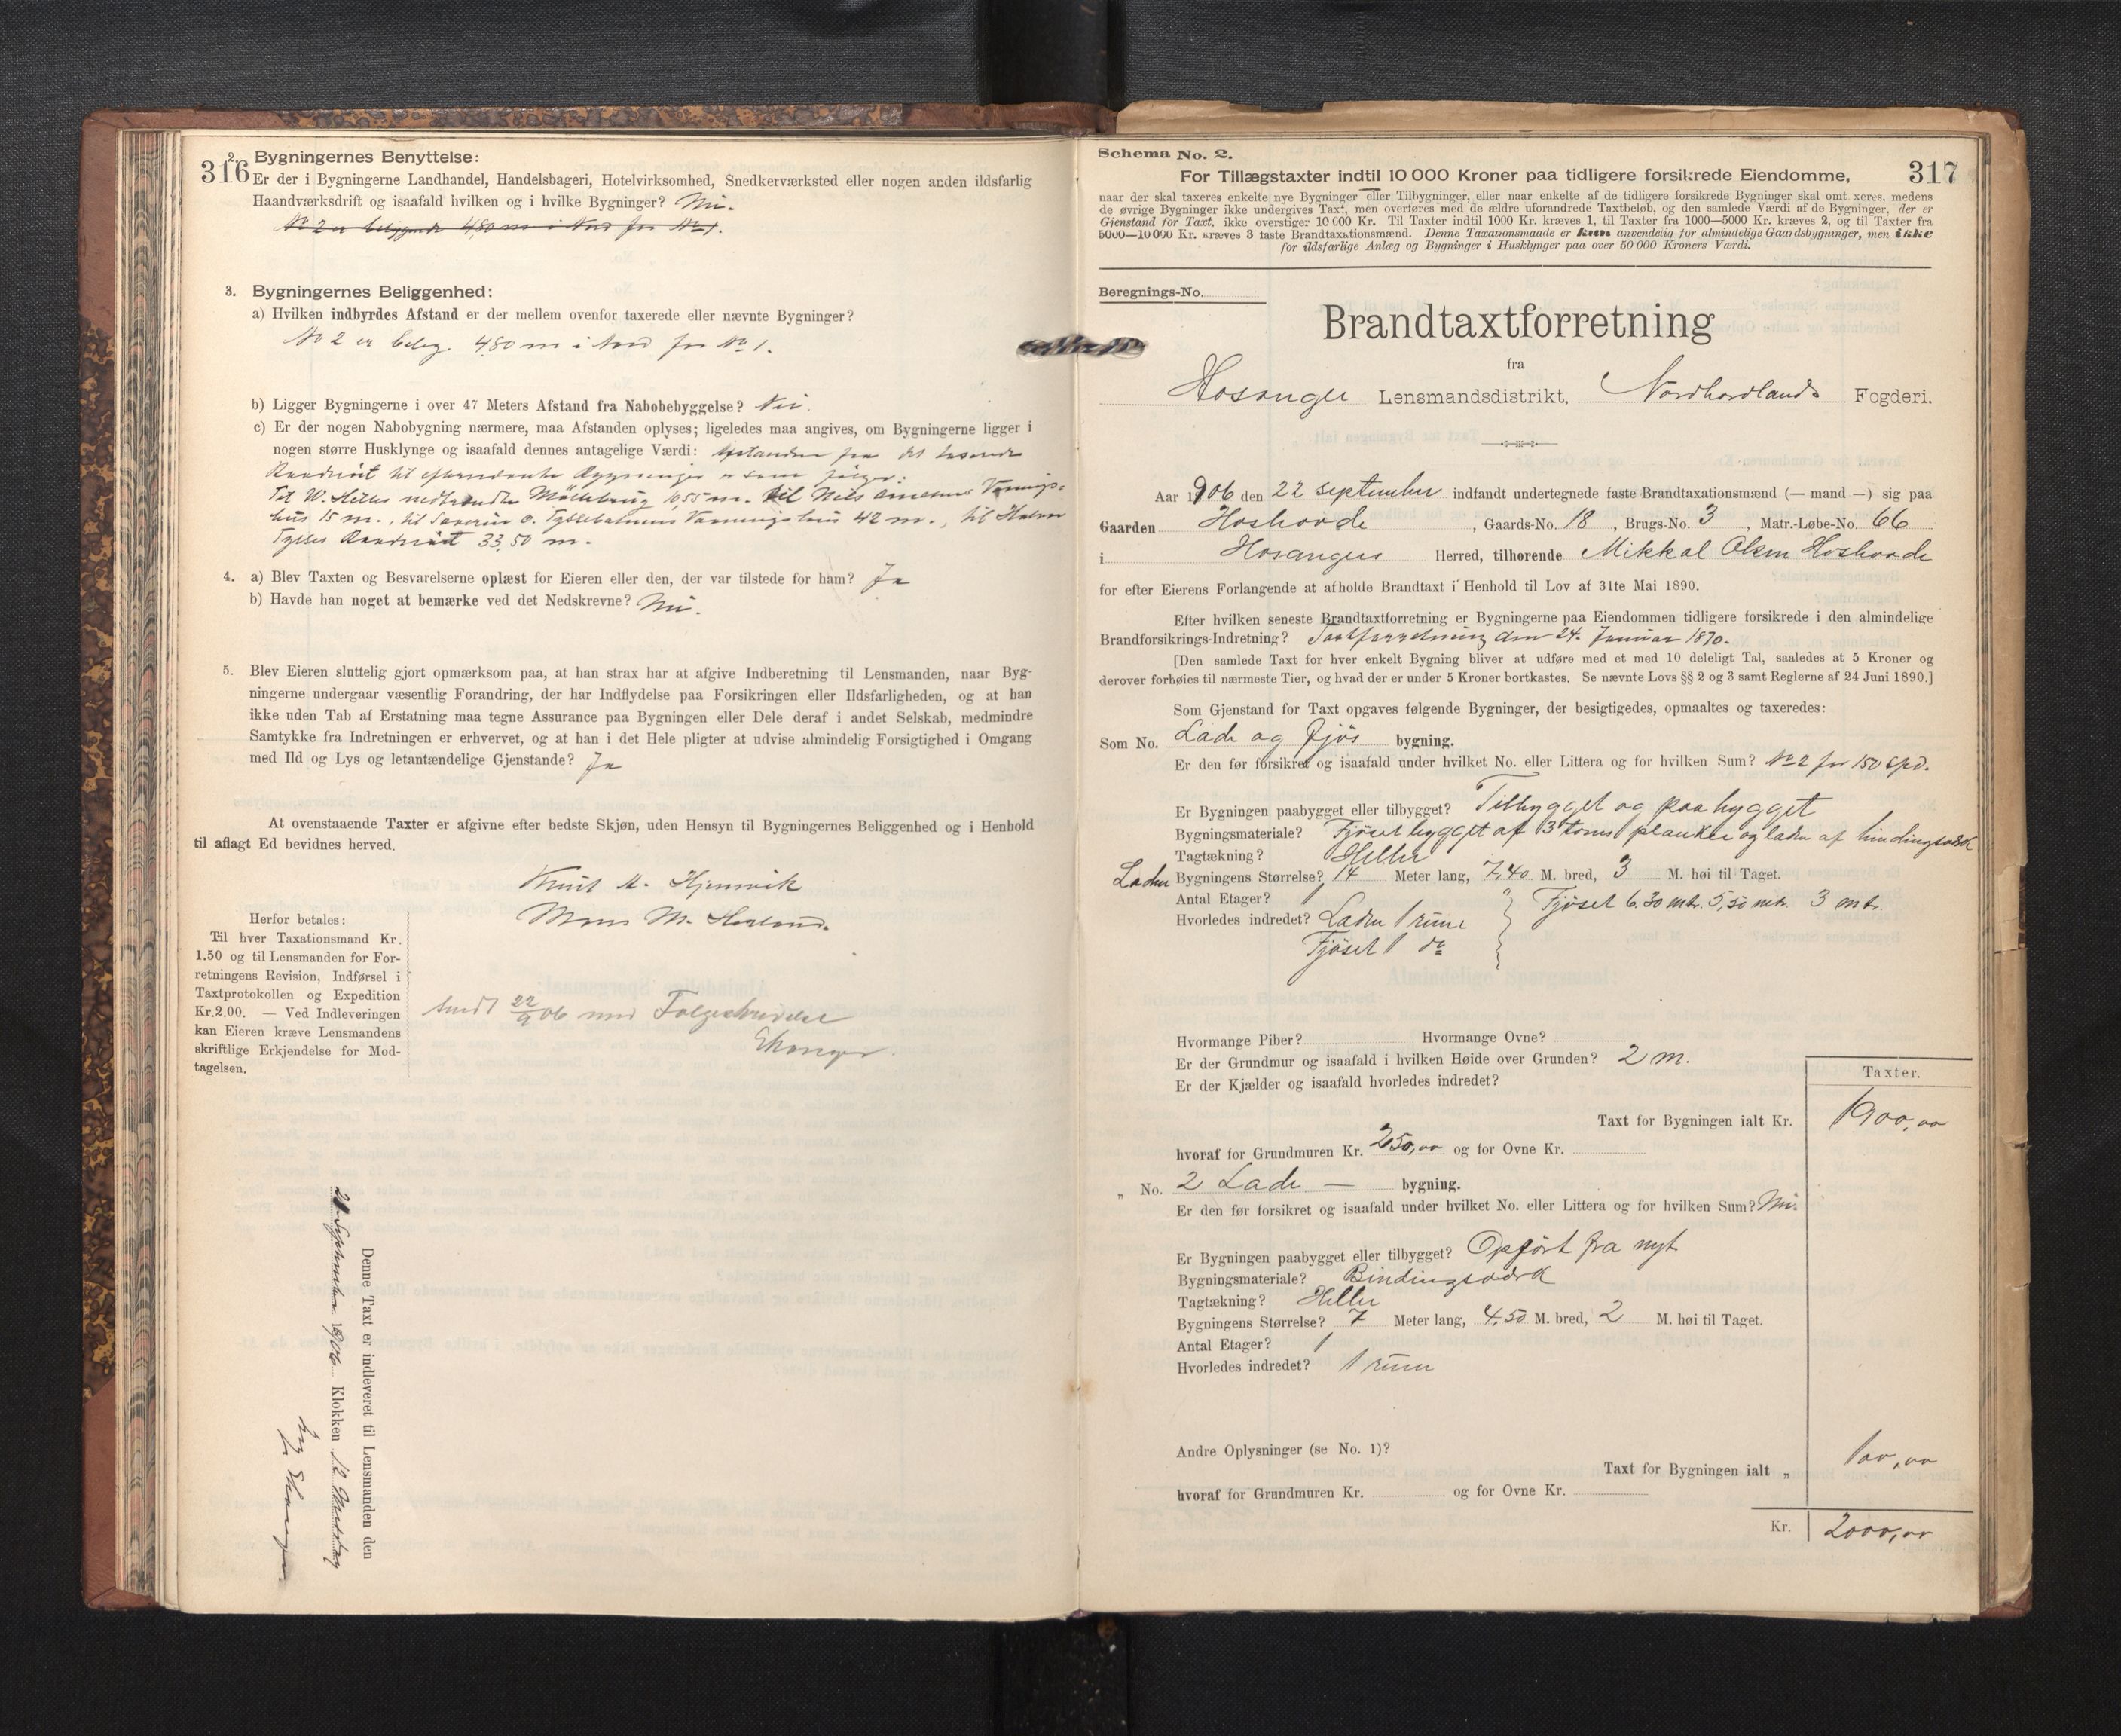 316
2. Bygningernes Benyttelse:
Er der i Bygningerne Landhandel, Handelsbageri, Hotelvirksomhed, Snedkerværksted eller nogen anden ildsfarlig
Haandværksdrift og isaafald hvilken og i hvilke Bygninger? Nei.
No 2 er beliggende 4,80 m i Nord for No 1.
3. Bygningernes Beliggenhed:
a) Hvilken indbyrdes Afstand er der mellem ovenfor taxerede eller nævnte Bygninger?
No 2 er belig. 4,80 m i Nord for No 1.
b) Ligger Bygningerne i over 47 Meters Afstand fra Nabobebyggelse? Nei.
c) Er der nogen Nabobygning nærmere, maa Afstanden oplyses; ligeledes maa angives, om Bygningerne ligger i
nogen større Husklynge og isaafald dennes antagelige Værdi: Afstanden fra det
til Bygninger er som følger:
Til W. nedbrændte 10,55 m. til Nils Vaanings-
hus 15 m., til Severin O. Vaaningshus 42 m., til
33,50 m.
4. a) Blev Taxten og Besvarelserne oplæst for Eieren eller den, der var tilstede for ham? Ja
b) Havde han noget at bemærke ved det Nedskrevne? Nei.
5. Blev Eieren sluttelig gjort opmærksom paa, at han strax har at afgive Indberetning til Lensmanden, naar Byg-
ningerne undergaar væsentlig Forandring, der har Indflydelse paa Forsikringen eller Ildsfarligheden, og at han
ikke uden Tab af Erstatning maa tegne Assurance paa Bygningen eller Dele deraf i andet Selskab, medmindre
Samtykke fra Indretningen er erhvervet, og at han i det Hele pligter at udvise almindelig Forsigtighed i Omgang
med Ild og Lys og letantændelige Gjenstande? Ja
At ovenstaaende Taxter er afgivne efter bedste Skjøn, uden Hensyn til Bygningernes Beliggenhed og i Henhold
til aflagt Ed bevidnes herved.
Knut M.
Mons M.
Herfor betales:
Til hver Taxationsmand Kr.
1.50 og til Lensmanden for For-
retningens Revision, Indførsel i
Taxtprotokollen og Expedition
Kr.2.00. — Ved Indleveringen
kan Eieren kræve Lensmandens
skriftlige Erkjendelse for Mod-
tagelsen.
Sendt 22/9 06 med Følgeskrivelse
Denne Taxt er indleveret til Lensmanden den
September 1906 Klokken 12 Middag
Schema No. 2.
317
For Tillægstaxter indtil 10 000 Kroner paa tidligere forsikrede Eiendomme,
naar der skal taxeres enkelte nye Bygninger eller Tilbygninger, eller naar enkelte af de tidligere forsikrede Bygninger skal omt xeres, medens
de øvrige Bygninger ikke undergives Taxt, men overføres med de ældre uforandrede Taxtbeløb, og den samlede Værdi af de Bygninger, der er
Gjenstand for Taxt, ikke overstige: 10 000 Kr. Til Taxter indtil 1000 Kr. kræves 1, til Taxter fra 1000—5000 Kr. kræves 2, og til Taxter fra
5000—10 000 Kr. kræves 3 faste Brandtaxationsmænd. Denne Taxationsmaade er kun anvendelig for almindelige Gaardsbygninger, men ikke
for ildsfarlige Anlæg og Bygninger i Husklynger paa over 50 000 Kroners Værdi.
Beregnings-No.
Brandtaxtforretning
fra
Hosanger Lensmandsdistrikt, Nordhordlands Fogderi.
Aar 1906 den 22 september indfandt undertegnede faste Brandtaxationsmænd (— mand —) sig paa
Gaarden Hoshovde, Gaards-No. 18, Brugs-No. 3, Matr.-Løbe-No. 66
i Hosanger Herred, tilhørende Mikkal Olsen Hoshovde
for efter Eierens Forlangende at afholde Brandtaxt i Henhold til Lov af 31te Mai 1890.
Efter hvilken seneste Brandtaxtforretning er Bygningerne paa Eiendommen tidligere forsikrede i den almindelige
Brandforsikrings-Indretning? Taxtforretning den 24. Januar 1870.
[Den samlede Taxt for hver enkelt Bygning bliver at udføre med et med 10 deleligt Tal, saaledes at 5 Kroner og
derover forhøies til nærmeste Tier, og hvad der er under 5 Kroner bortkastes. Se nævnte Lovs §§ 2 og 3 samt Reglerne af 24 Juni 1890.]
Som Gjenstand for Taxt opgaves følgende Bygninger, der besigtigedes, opmaaltes og taxeredes:
Som No. Lade og Fjøs bygning.
Er den før forsikret og isaafald under hvilket No. eller Littera og for hvilken Sum? No 2 for 150 spd.
Er Bygningen paabygget eller tilbygget? Tilbygget og paabygget
Bygningsmateriale? Fjøset bygget af 3 toms planker og laden af bindingsværk
Tagtækning? Heller
Laden Bygningens Størrelse? 14 Meter lang, 7,40 M. bred, 3 M. høi til Taget.
Antal Etager? 1 Fjøset 6.30 mtr. 5,50 mtr. 3 mtr.
Hvorledes indredet? Laden 1 rum
Fjøset 1 do
Hvormange Piber? Hvormange Ovne?
Er der Grundmur og isaafald i hvilken Høide over Grunden? 2 m.
Er der Kjælder og isaafald hvorledes indredet?
Taxter.
Taxt for Bygningen ialt Kr. 1900,00
hvoraf for Grundmuren Kr. 250,00 og for Ovne Kr.
„ No. 2 Lade — bygning.
Er den før forsikret og isaafald under hvilket No. eller Littera og for hvilken Sum? Nei.
Er Bygningen paabygget eller tilbygget? Opført fra nyt
Bygningsmateriale? Bindingsværk
Tagtækning? Heller
Bygningens Størrelse? 7 Meter lang, 4,50 M. bred, 2 M. høi til Taget.
Antal Etager? 1
Hvorledes indredet? 1 rum
Andre Oplysninger (se No. 1)?
Taxt for Bygningen ialt „ 100,00
hvoraf for Grundmuren Kr. og for Ovne Kr.
Kr. 2000,00